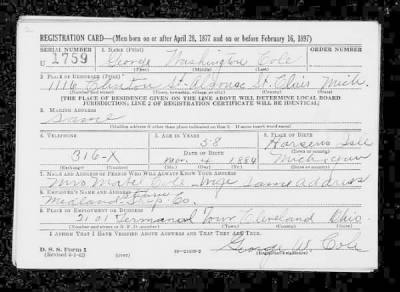 REGISTRATION CARD—(Men born on or after April 28, 1877 and on or before February 16, 1897)
SERIAL NUMBER 1. NAME (Print) ORDER NUMBER
1759 George Washington Cole
(First) (Middle) (Last)
2. PLACE OF RESIDENCE (Print)
1116 Clinton St. Clair Mich.
(Number and street) (Town, township, village, or city) (County) (State)
[THE PLACE OF RESIDENCE GIVEN ON THE LINE ABOVE WILL DETERMINE LOCAL BOARD
JURISDICTION; LINE 2 OF REGISTRATION CERTIFICATE WILL BE IDENTICAL]
3. MAILING ADDRESS
Same
[Mailing address if other than place indicated on line 2. If same insert word same]
4. TELEPHONE 5. AGE IN YEARS 6. PLACE OF BIRTH
58 Harsens Isle
DATE OF BIRTH (Town or county)
316-X 4 1884 Michigan
(Exchange) (Number) (Mo.) (Day) (Yr.) (State or country)
7. NAME AND ADDRESS OF PERSON WHO WILL ALWAYS KNOW YOUR ADDRESS
Mrs Cole Wife Same Address
8. EMPLOYER'S NAME AND ADDRESS
Midland Steam Ship Co.
9. PLACE OF EMPLOYMENT OR BUSINESS
2101 Tower Cleveland Ohio.
(Number and street or R. F. D. number) (Town) (County) (State)
I AFFIRM THAT I HAVE VERIFIED ABOVE ANSWERS AND THAT THEY ARE TRUE.
D. S. S. Form 1 George W. Cole
(Revised 4-1-42) (over) (Registrant's signature)